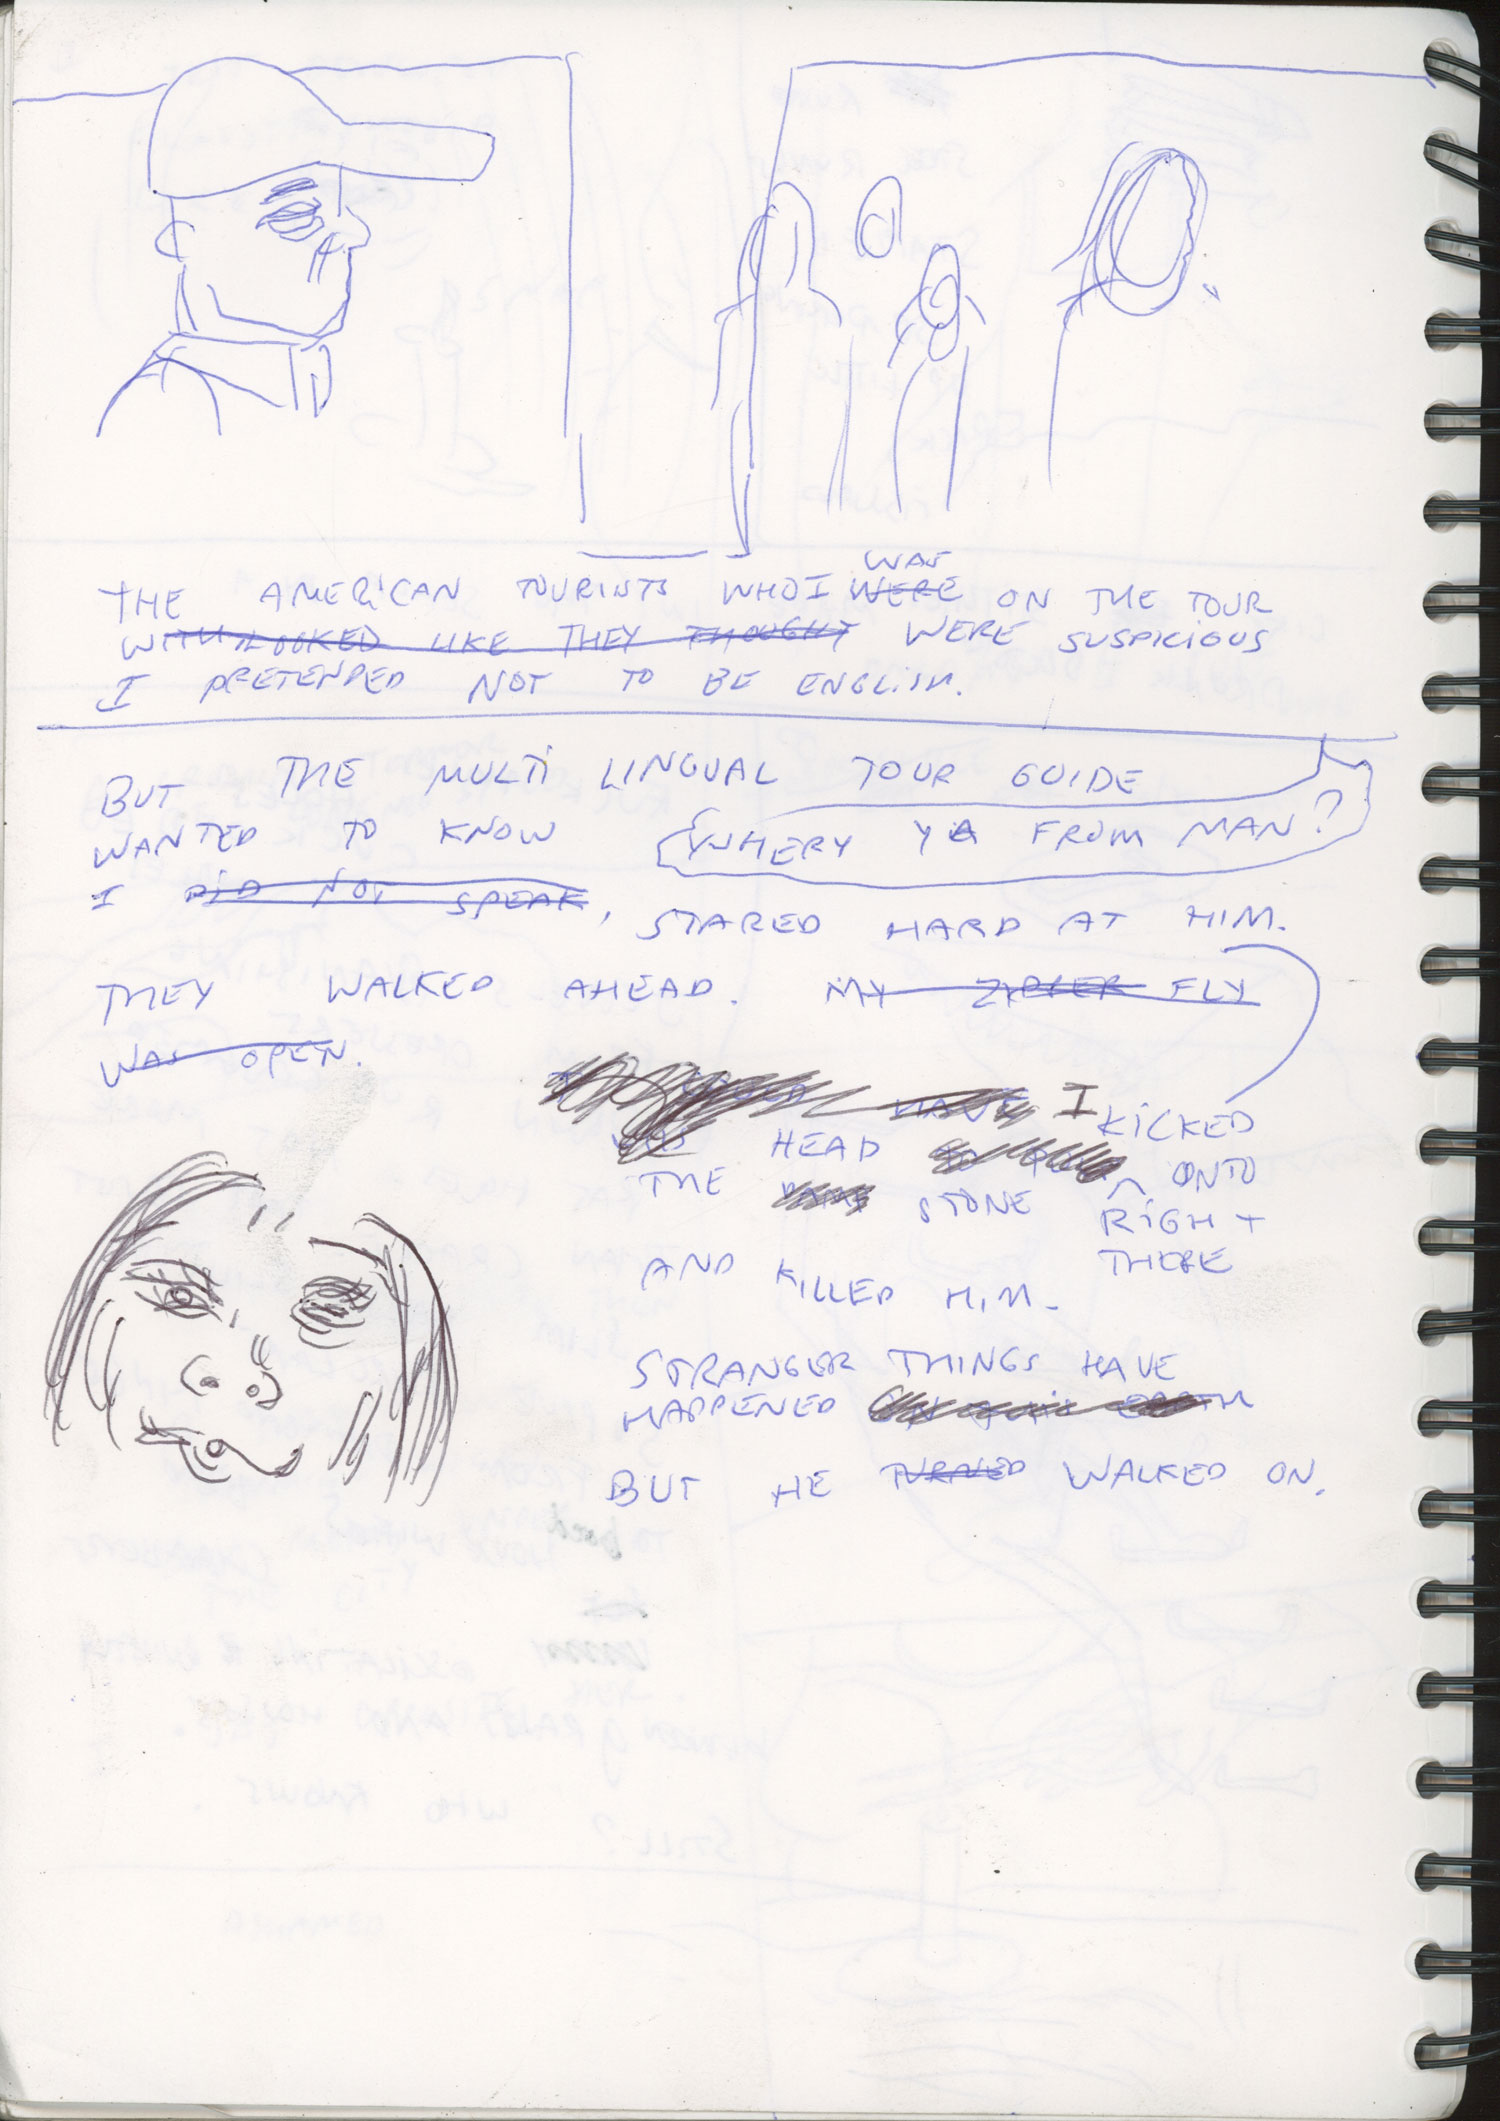 WAS
THE AMERICAN TOURISTS WHO I WERE ON THE TOUR
WITH LOOKED LIKE THEY THOUGHT WERE SUSPICIOUS
I PRETENDED NOT TO BE ENGLISH.
BUT THE MULTI LINGUAL TOUR GUIDE
WANTED TO KNOW WHERY YA FROM MAN?
I DID NOT SPEAK, STARED HARD AT HIM.
THEY WALKED AHEAD. MY ZIPPER FLY
WAS OPEN.
HAVE I KICKED
HEAD
THE STONE ONTO
RIGHT
THERE
AND KILLED HIM.
STRANGER THINGS HAVE
HAPPENED
BUT HE TURNED WALKED ON.